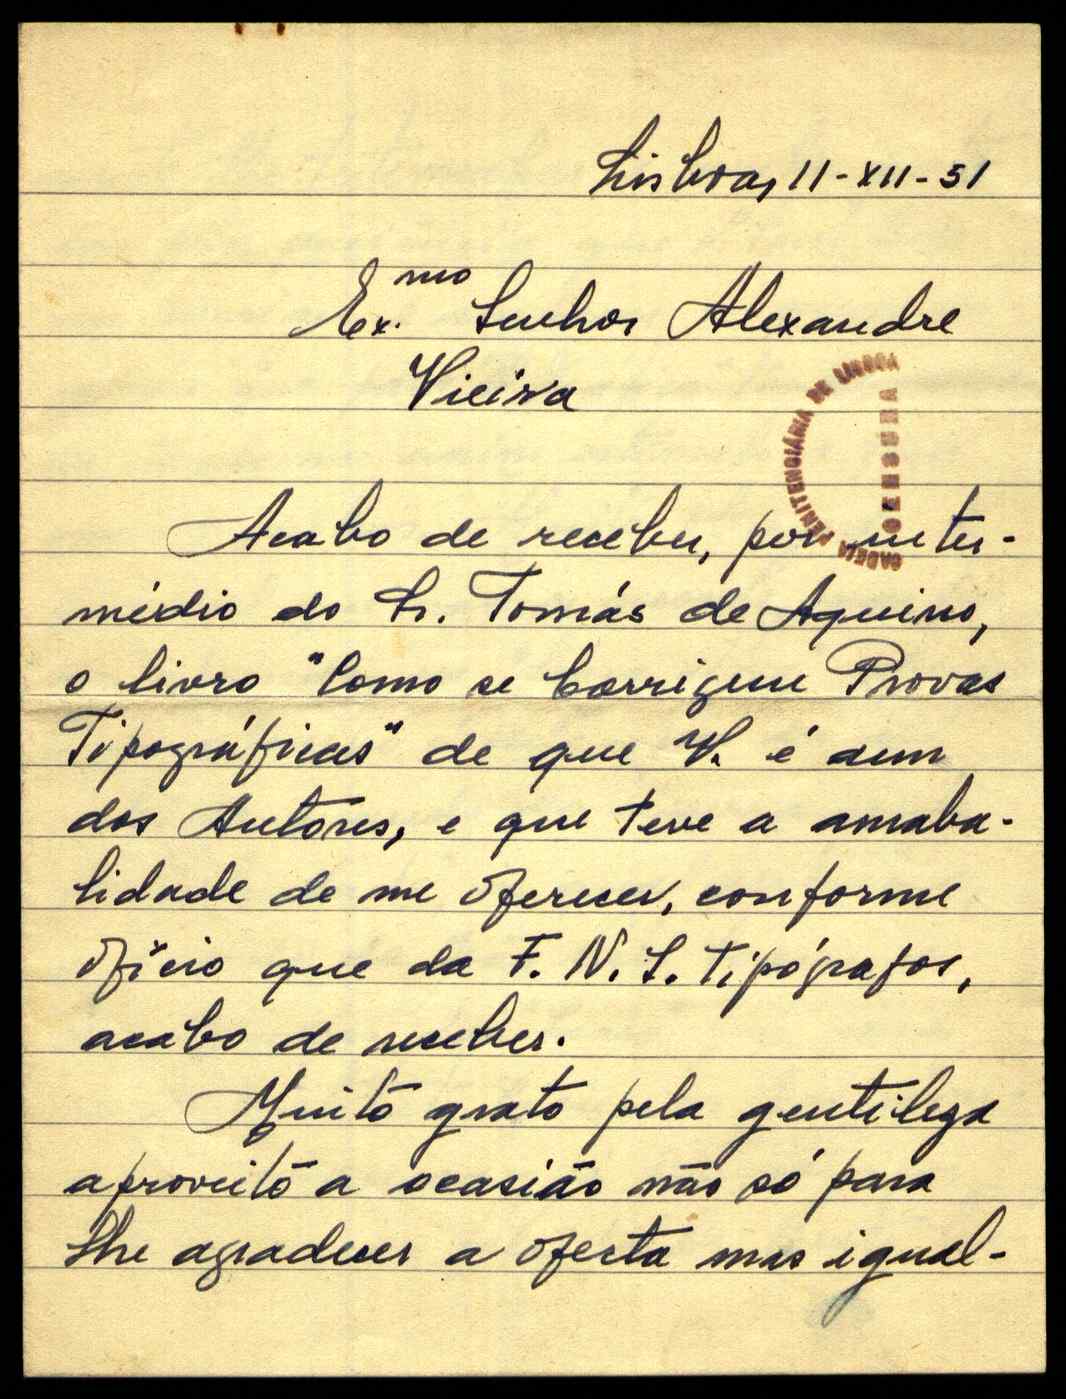 Lisboa, 11-XII-51
Ex.mo Senhor Alexandre
Vieira
CADEIA PENITENCIÁRIA DE LISBOA
CENSURA
Acabo de receber, por inter-
médio do Sr. Tomás de Aquino,
o livro "Como se Corrigem Provas
Tipográficas" de que V. é um
dos Autores, e que teve a amaba-
lidade de me oferecer, conforme
ofício que da F. N. S. Tipógrafos,
acabo de receber.
Muito grato pela gentileza
aproveito a ocasião não só para
lhe agradecer a oferta mas igual-